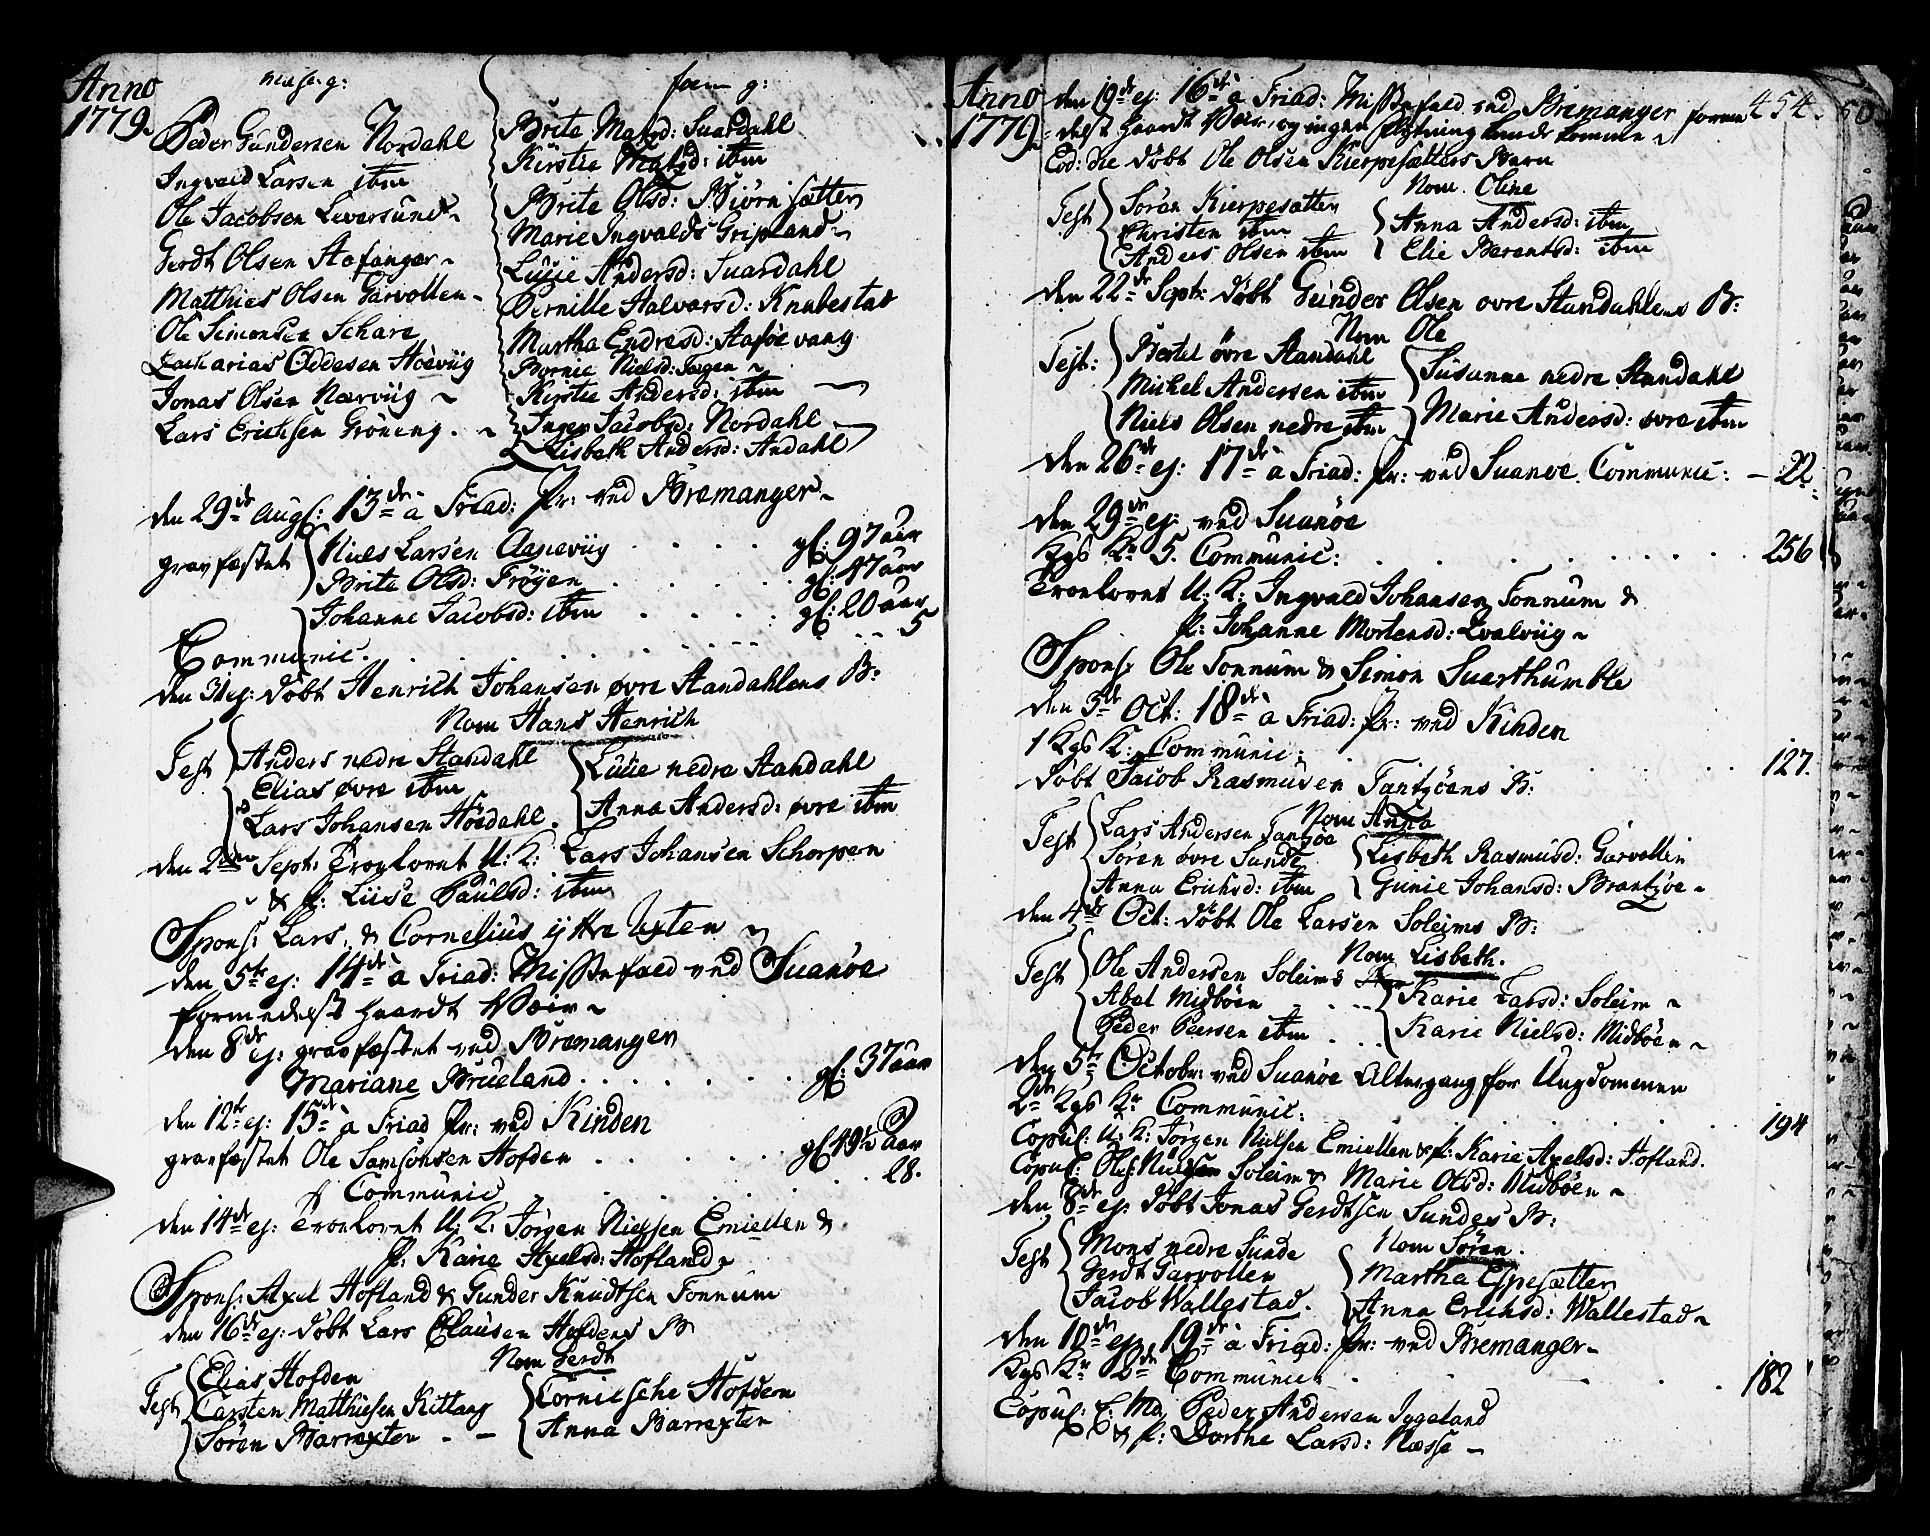 Anno 1779.
Peder Gundersen Nordahl
Ingvald Larsen ibm
Ole Jacobsen Leversund
Gerdt Olsen Stafanger
Matthies Olsen Garvollen
Ole Simonsen Schare
Zacharias Oddesen Hoeviig
Jonas Olsen Nærviig
Lars Erichsen Gröneng
foem g:
Brite Masd: Suardahl
Kirstie ibm
Brite Olsd: Biörnsætter
Marie Ingvalds Gripland
Lucie Andersd: Suardahl
Pernille Halvarsd: Knabestad
Martha Endresd: Aaföe vang
Nielsd:
Kirstie Andersd: ibm
Inger Jacobsd: Nordahl
Lisbeth Andersd: Andahl
den 29de Augs: 13de à Triad: Pr: ved Bremanger
gravfæstet Niels Larsen Aaneviig . . . . gl: 97 aar
Brite Olsd: Fröyen . . . . gl: 47 aar
Johanne Jacobsd: ibm . . . . gl: 20 aar
Communic. . . . . 5
den 31 ej: döbt Henrich Johansen övre Standahlens B:
Nom Hans Henrich
Test Anders nedre Standahl
Elias övre ibm
Lars Johansen Höedahl.
Lucie nedre Standahl
Anna Andersd: övre ibm
den 2den Sept: Trovlovet U: K: Lars Johansen Schorpen
& P: Lucie Paulsd: ibm
Spons: Lars & Cornelius yttre Uxten
den 5te ej: 14de à Triad: Missefald ved Suanöe
formedelst haardt Veir
den 8de ej: gravfæstet ved Bremanger
Mariane Brueland . . . . gl: 37 aar
den 12te ej: 15de à Triad Pr: ved Kinden
gravfæstet Ole Samsonsen Hofden . . . . gl: 49½ aar
Communic . . . . 28.
den 14de ej: Trovlovet U: K: Jörgen Nielsen Emiellen &
P: Karie Axelsd: Hofland
Spons: Axel Hofland & Gunder Knudtsen Tonnum
den 16de ej: döbt Lars Clausen Hofdens B
Nom Gerdt
Test Elias Hofden
Carsten Matthiesen Kittang
Sören Barrexten
Cornelsche Hofden
Anna Barrexten
Anno 1779.
den 19de ej: 16de à Triad: Missefald ved Bremanger formedelst 454.
haardt Veir, og ingen flytning kunde komme
Eod: die döbt Ole Olsen Kierpesætters Barn
Nom. Oline
Test Sören Kierpesætter
Christen ibm
Anders Olsen ibm
Anna Andersd: ibm
Elie Berentsd: ibm
den 22de Sept: döbt Gunder Olsen övre Standahlens B:
Nom Ole
Test: Bertel övre Standahl
Michel Andersen ibm
Niels Olsen nedre ibm
Susanne nedre Standahl
Marie Andersd: övre ibm
den 26de ej: 17de à Triad: Pr: ved Suanöe. Communic: 22.
den 29de ej: ved Suanöe
Kgs Kr 5. Communic: . . . . 256
Trovlovet U: K: Ingvald Johansen Tonnum &
P: Johanne Mortensd: Qvalviig
Spons: Ole Tonnum & Simon Suarthumble
den 3de Oct: 18de à Triad: Pr: ved Kinden
1 Kgs K: Communic: . . . . 127.
döbt Jacob Rasmusen Tantzöens B:
Nom Anna
Test Lars Andersen Tantzöe
Sören övre Sunde
Anna Erichsd: ibm
Lisbeth Rasmusd: Garvollen
Gunie Johansd: Brantzöe
den 4de Oct: döbt Ole Larsen Soleims B:
Nom Lisbeth.
Test Ole Andersen Soleim
Abel Midböen
Peder Peersen ibm
Karie Larsd: Soleim
Karie Nielsd: Midböen
den 5te Octobr: ved Suanöe Altergang for Ungdommen
2de Kgs Kr Communic: . . . . 194
Copul: U: K: Jörgen Nielsen Emiellen & P: Karie Axelsd: Hofland.
Copul: Ole Nielsen Soleim & Marie Olsd: Midböen
den 8de ej: döbt Jonas Gerdtsen Sundes B:
Nom Sören.
Test Mons nedre Sunde
Gerdt Garvollen
Jacob Wallestad.
Martha Espesætter
Anna Erichsd: Wallestad
den 10de ej: 19de à Triad: Pr: ved Bremanger
Kgs Kr 2de Communic . . . . 182
Copul: Peder Andersen Indgeland
& P: Dorthe Larsd: Næsse